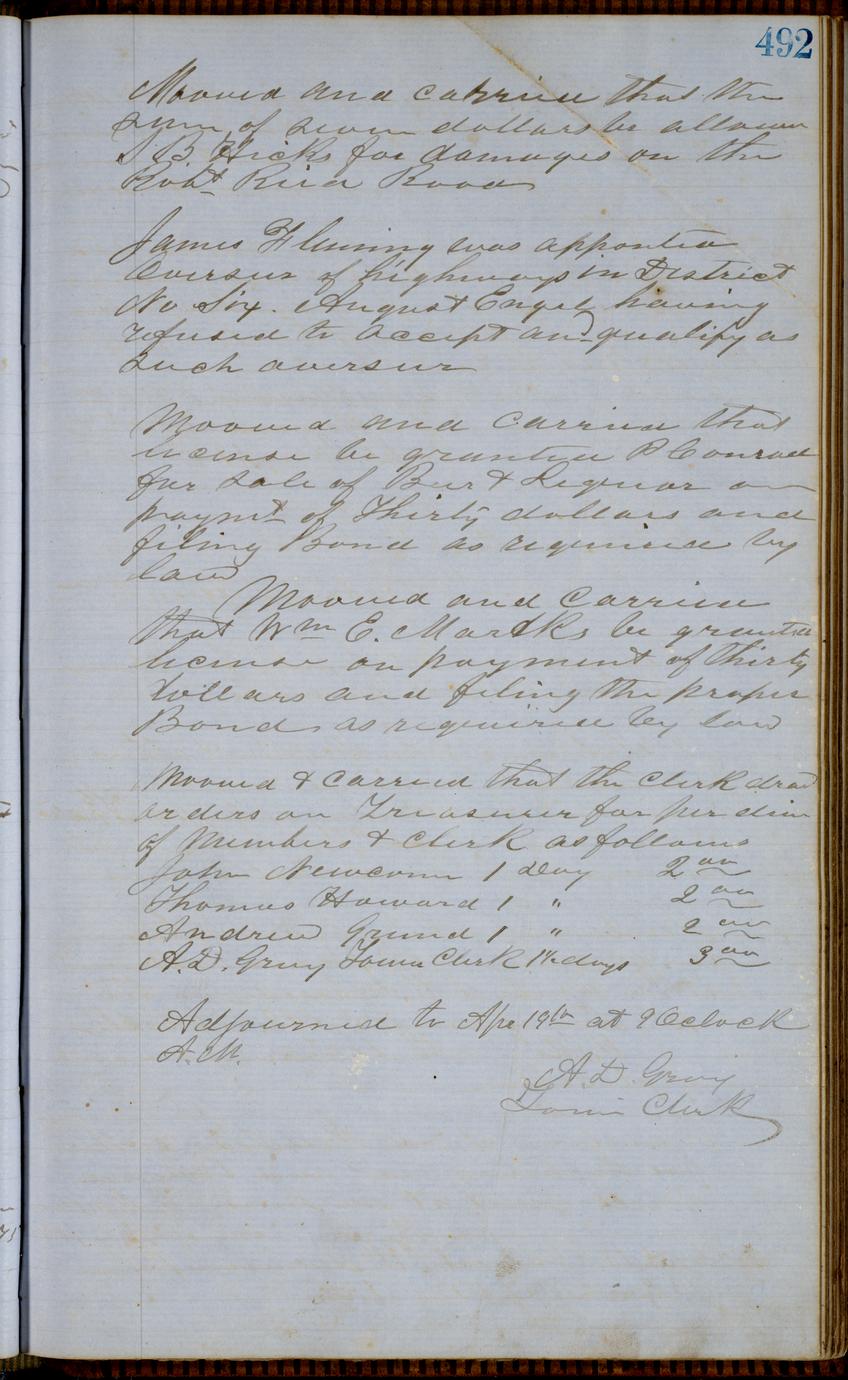 492
Mooved and carried that the
sum of seven dollars be allowed
B. Hicks for damages on the
Robt Reid Road
James Fleming was appointed
Overseer of highways in District
No Six. August Engel having
refused to accept and qualify as
such overseer
Mooved and Carried that
license be granted P Conrad
for sale of Beer & Liquor on
paymt of Thirty dollars and
filing Bond as required by
law
Mooved and Carried
that Wm E. Martks be granted
license on payment of thirty
dollars and filing the proper
Bond as required by law
Mooved & Carried that the Clerk draw
orders on Treasurer for per diem
of Members & Clerk as follows
John Newcomn 1 Day 2 00
Thomas Howard 1 " 2 00
Andrew Grund 1 " 2 00
A. D. Gray Town Clerk 1½ days 3 00
Adjourned to Apr 19th at 9 Oclock
A.M.
A. D. Gray
Town Clerk